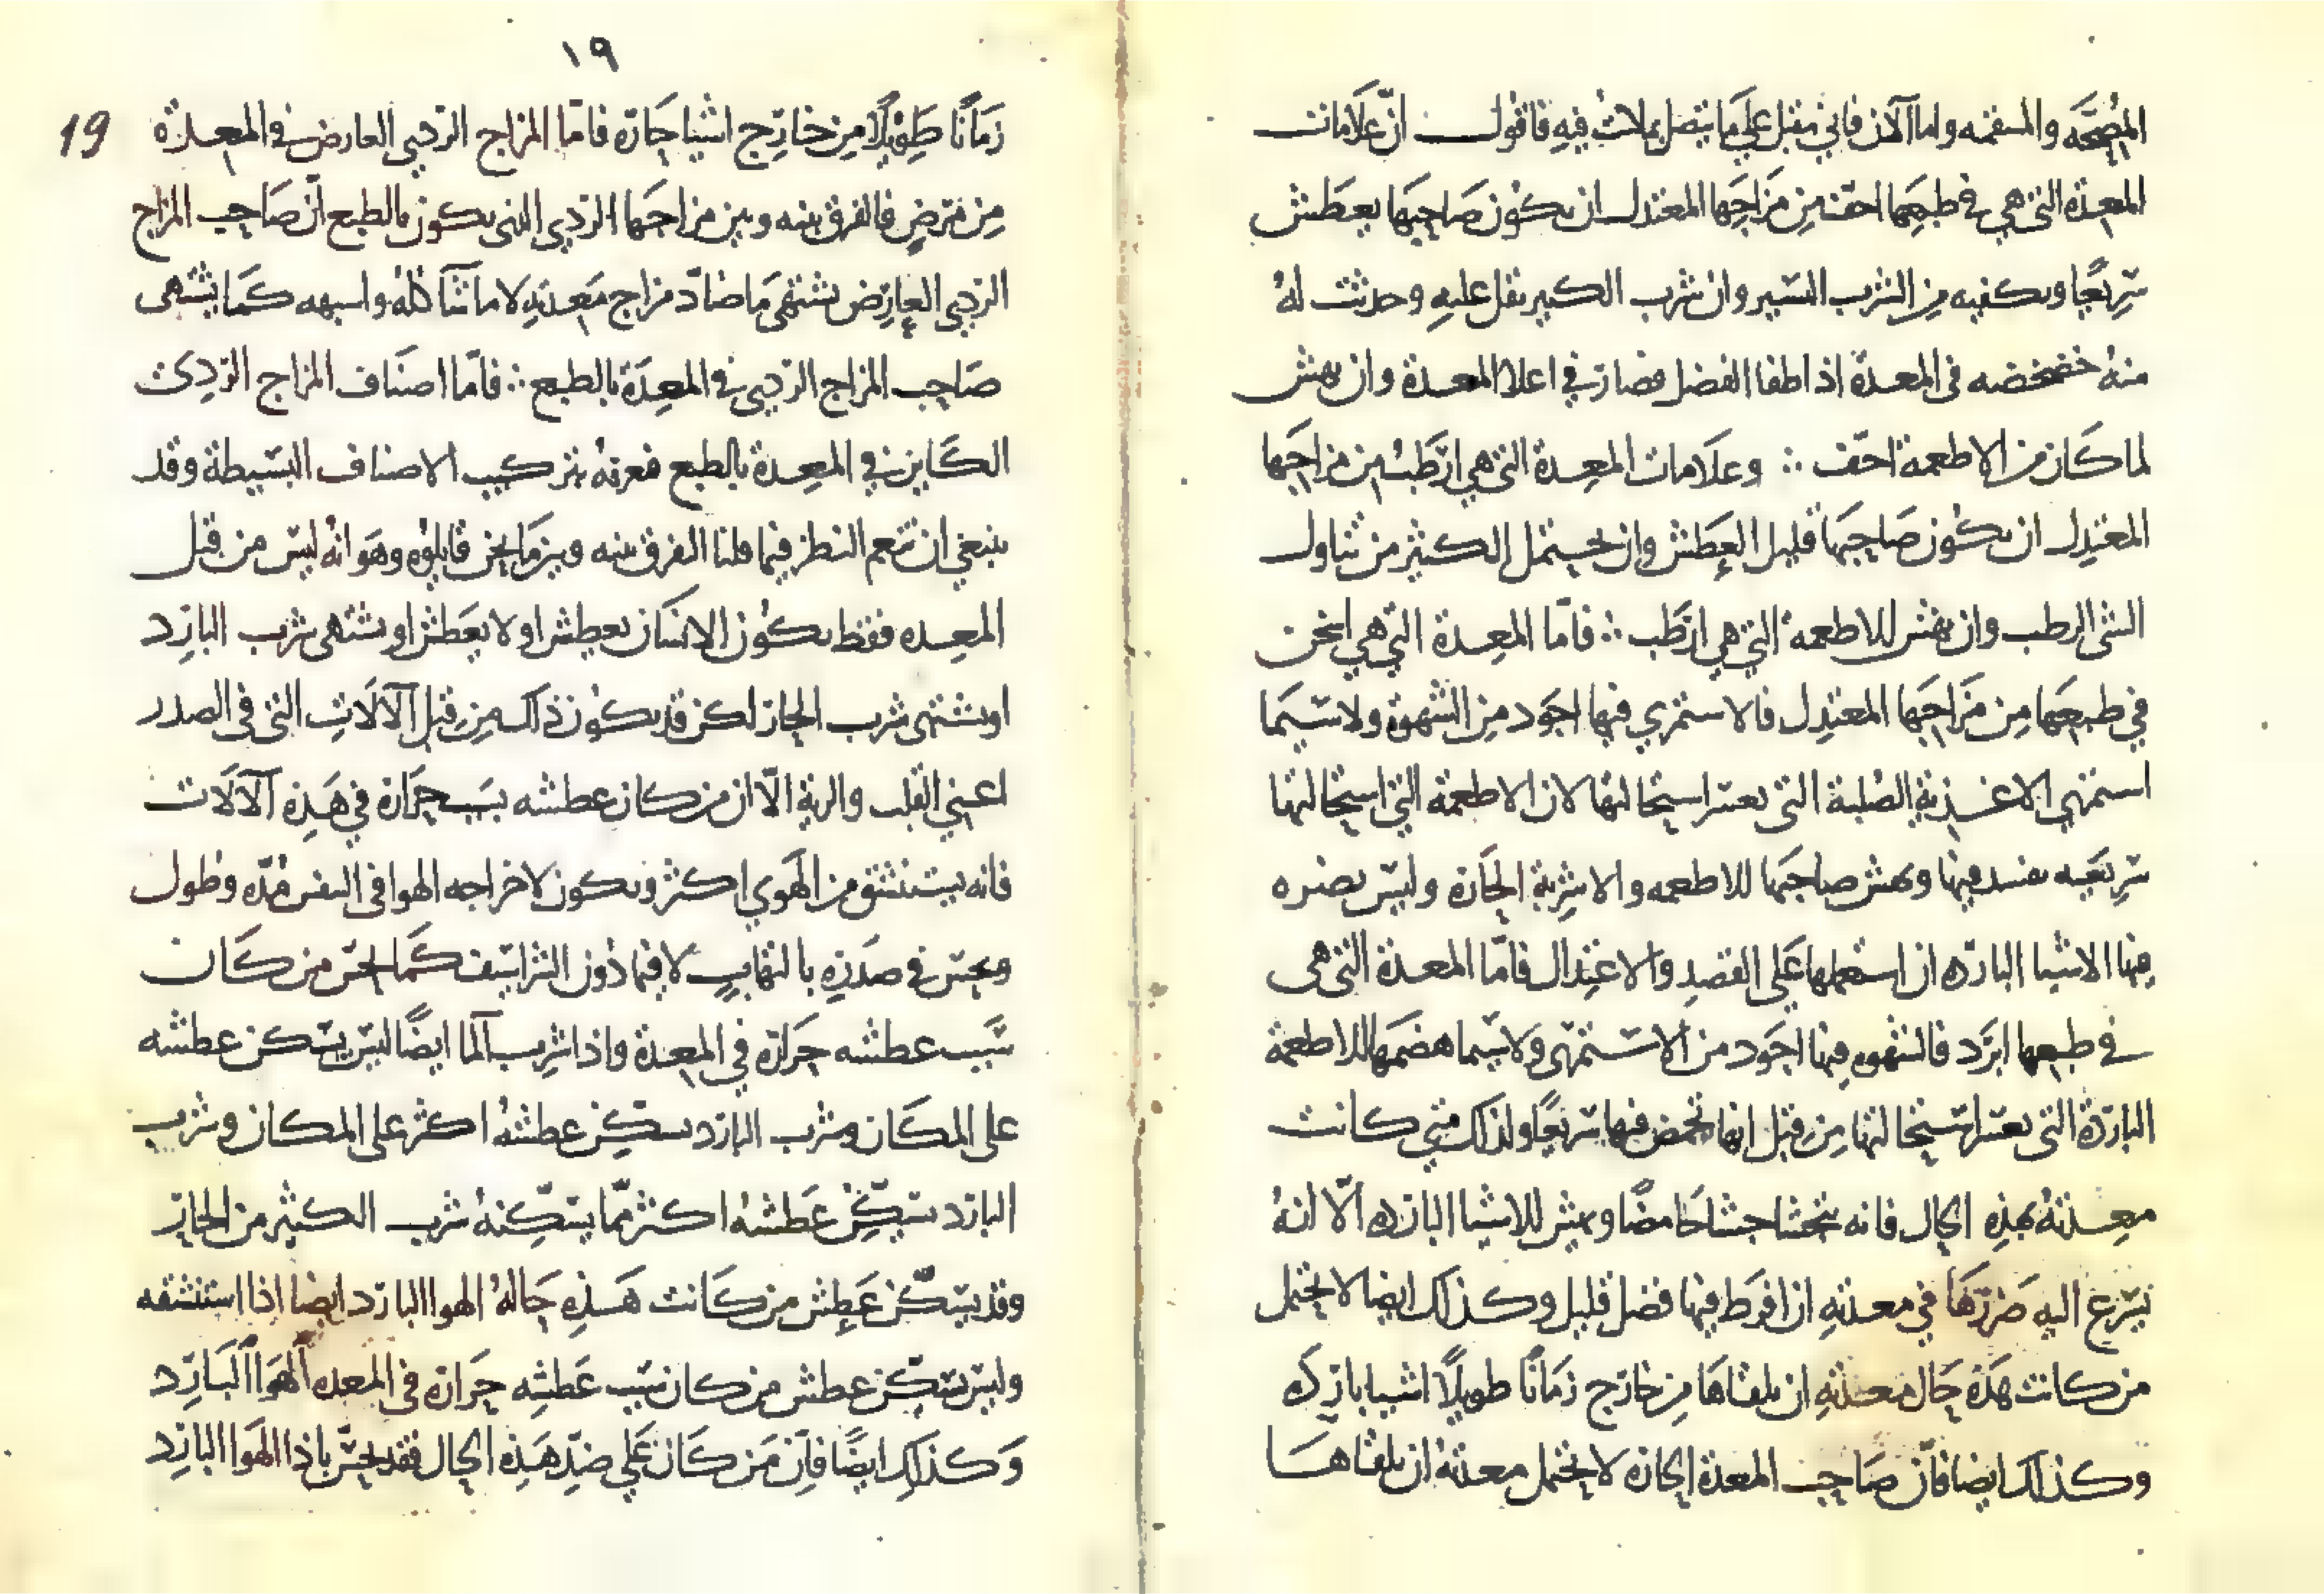 المصححه والمسقمه واما الآن فاني مقبل على ما يتصل بما كنت فيه فاقول ان علامات
المعدة التي هي في طبعها اجف من مزاجها المعتدل ان يكون صاحبها يعطش
سريعًا ويكفيه من الشرب اليسير وان شرب الكثير ثقل عليه وحدثت له
منه خضخضه في المعدة اذ اطفا الفضل فصار في اعلا المعدة وان يهش
لما كان من الاطعمة اجف ∴ وعلامات المعدة التي هي ارطب من مزاجها
المعتدل ان يكون صاحبها قليل العطش وان يحتمل الكثير من تناول
الشي الرطب وان يهش للاطعمه التي هي ارطب ∴ فامّا المعدة التي هي اسخن
في طبعها من مزاجها المعتدل فالاستمري فيها اجود من الشهوة ولا سيّما
استمري الاغذية الصلبة التي يعسر استحالتها لان الاطعمة التي استحالتها
سريعه يفسد فيها ويهش صاحبها للاطعمه والاشربة الحارة وليس يضره
منها الاشيا الباردة ان استعملها على القصد والاعتدال فامّا المعدة التي هي
في طبعها ابرد فالشهوة فيها اجود من الاستمري ولا سيما هضمها للاطعمة
الباردة التي يعسر استحالتها من قبل انها تحمض فيها سريعًا ولذلك متى كانت
معدته بهذه الحال فانه يتجشا جشا حامضًا ويهش للاشيا الباردة الّا انه
يسرع اليه ضررها في معدته ان افرط فيها فضل قليل وكذلك ايضا لا يحتمل
من كانت هذه حال معدته ان يلقاها من خارج زمانًا طويلًا اشيا باردة
وكذلك ايضا فانّ صاحب المعدة الحارة لا يحتمل معدته ان يلقاها
١٩
19
زمانًا طويلًا من خارج اشيا حارة فامّا المزاج الردي العارض في المعدة
من مرض فالفرق بينه وبين مزاجها الردي الذي يكون بالطبع انّ صاحب المزاج
الردي العارض يشتهي ما ضادّ مزاج معدته لا ما شاكله واشبهه كما يشتهى
صاحب المزاج الردي في المعدة بالطبع ∴ فامّا اصناف المزاج الردي
الكاين في المعدة بالطبع فعرفه بتركيب الاصناف البسيطة وقد
ينبغي ان تنعم النظر فيما قلنا الفرق بينه وبين ما نحن قايلوه وهو انه ليس من قبل
المعده فقط يكون الانسان يعطش او لا يعطش او يشتهي شرب البارد
او يشتهي شرب الحار لكن قد يكون ذلك من قبل الآلات التي في الصدر
اعني القلب والرية الّا ان من كان عطشه بسبب حرارة في هذه الآلات
فانه يستنشق من الهوي اكثر ويكون لاخراجه الهوا في النفس مدّه وطول
ويحس في صدره بالتهاب لا فيما دون الشراسيف كما يحسّ من كان
سبب عطشه حرارة في المعدة واذا شرب الما ايضًا ليس يسكن عطشه
على المكان وشرب البارد يسكّن عطشه اكثر على المكان وشرب
البارد يسكّن عطشه اكثر ممّا يسكّنه شرب الكثير من الحار
وقد يسكّن عطش من كانت هذه حاله الهوا البارد ايضا اذا استنشقه
وليس يسكّن عطش من كان سبب عطشه حرارة في المعده الهوا البارد
وكذلك ايضًا فان من كان على ضدّ هذه الحال فقد يحسّ باذا الهوا البارد